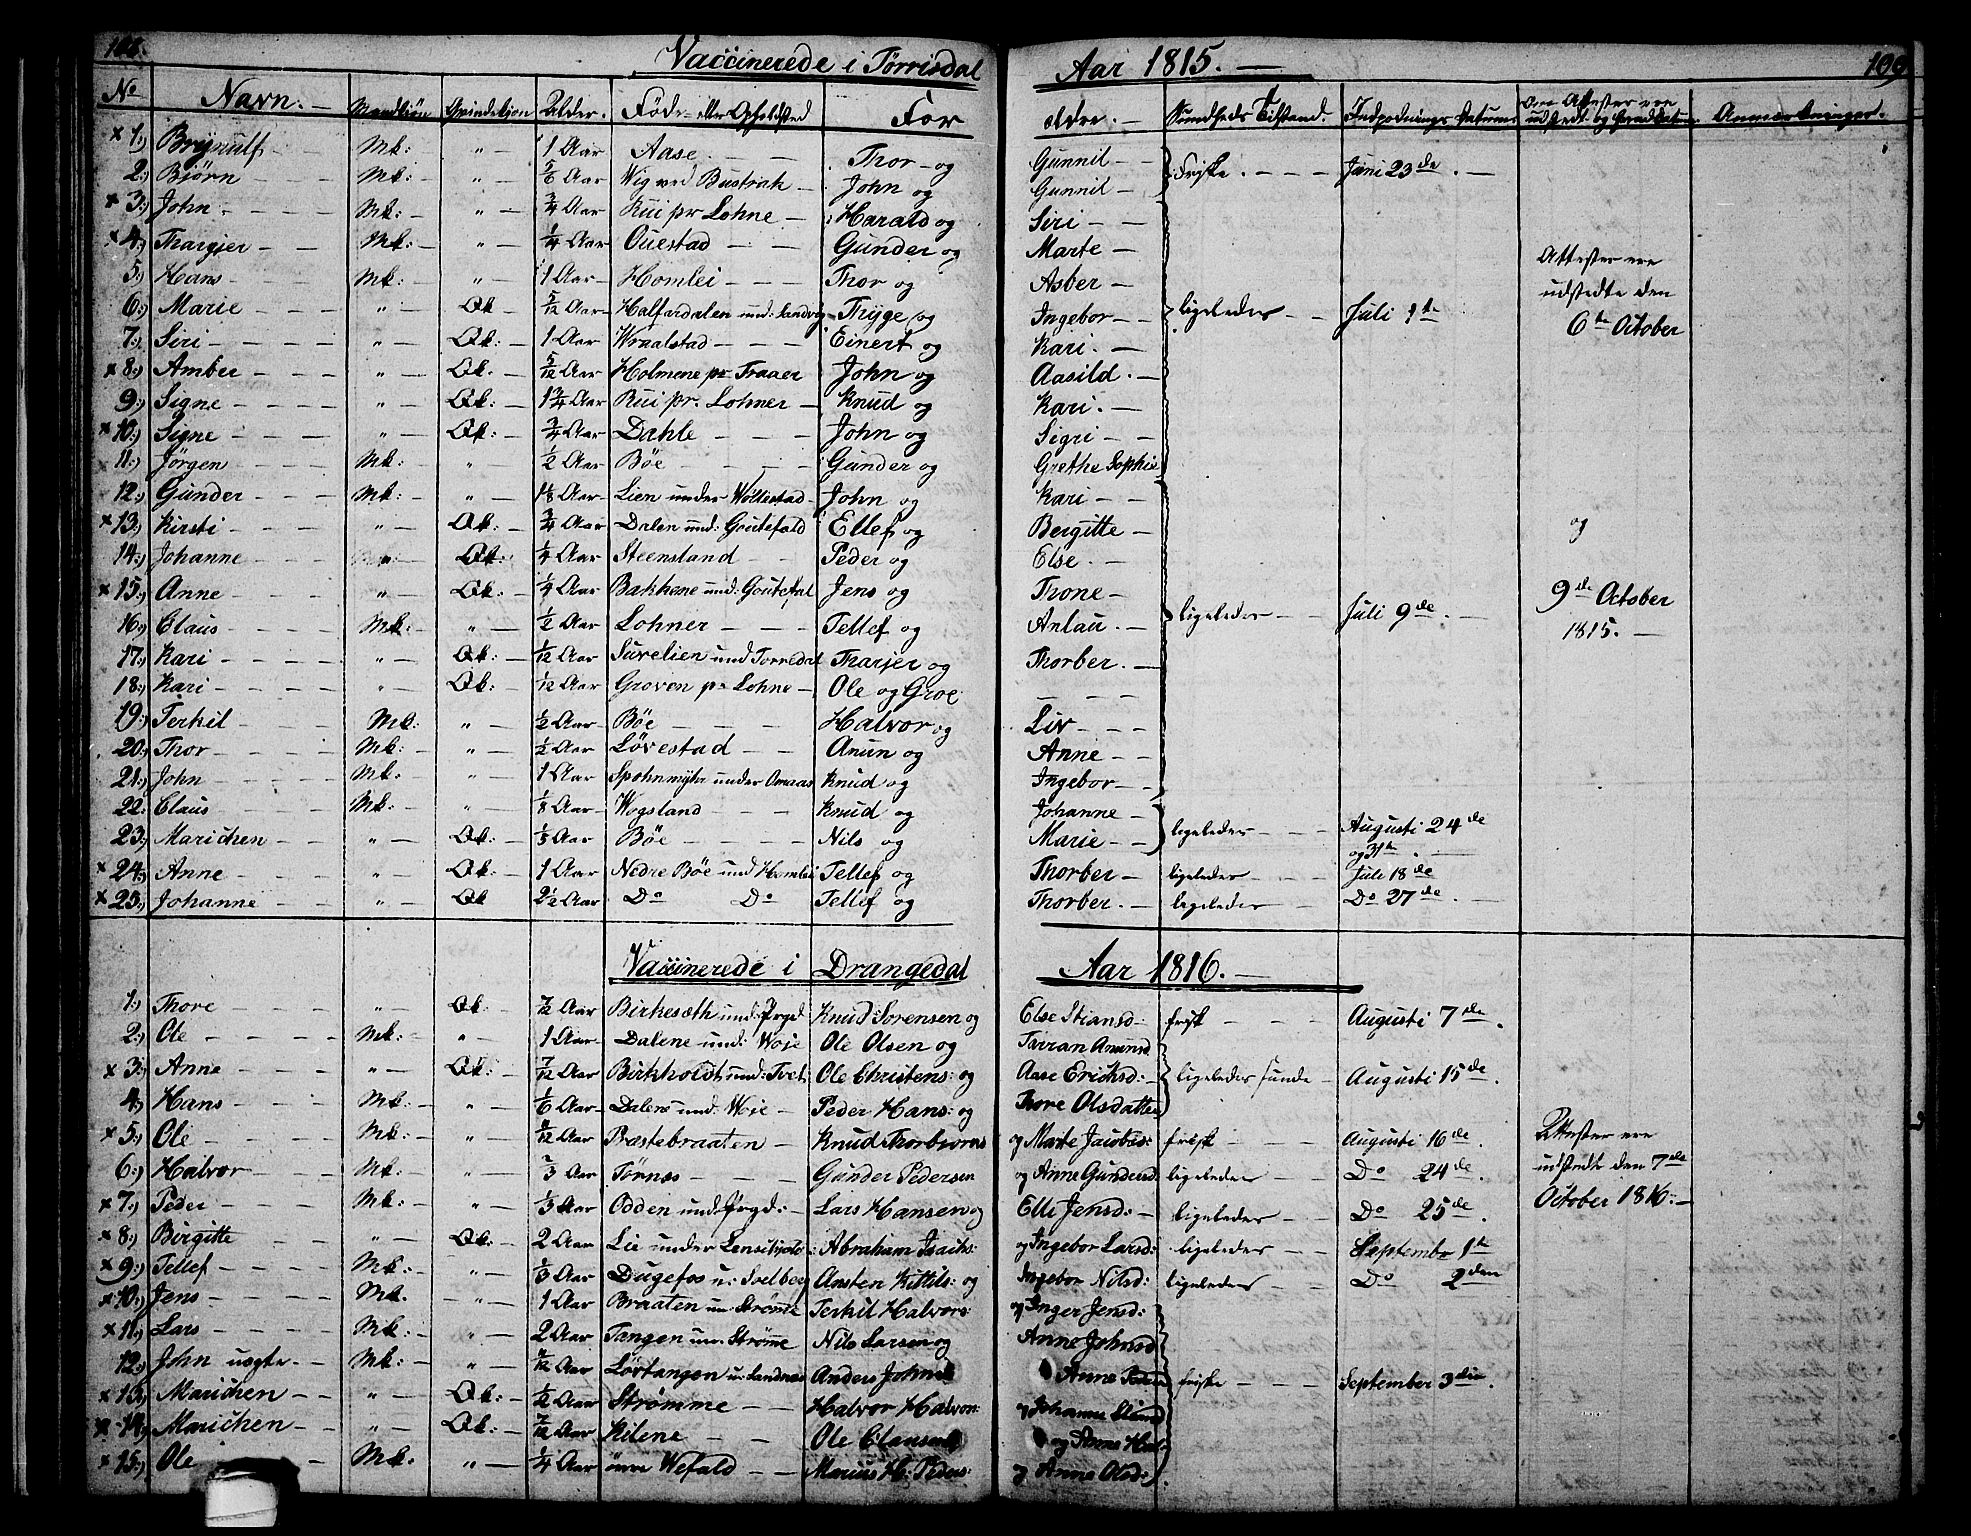 Vaccinerede i Tørrisdal Aar 1815. 109
No Navn. Mandkiøn Qvindekiøn Alder. Føde- eller Opholdsted Forældre. Sundheds Tilstand. Indpodnings Datum Om Attester ere udstedt og hvad Datum Anmærkninger.
x 1.) Brynulf Mk: " 1 Aar Aase Thor og Gunnil Friske. Juni 23de
2.) Biørn Mk: " 5/6 Aar Wig ved Bustrak John og Gunnil
x 3.) John Mk: " 3/4 Aar Rui pr Lohne Harald og Siri
x 4.) Thargjer Mk: " 1/4 Aar Ouestad Gunder og Marte
5.) Hans Mk: " 1 Aar Homlei Thor og Asber
6.) Marie " Qk 5/12 Aar Halfardalen und: Sandvig Thyge og Ingebor ligeledes Juli 1te
7.) Siri " Qk: 1 Aar Wraalstad Einert og Kari.
x 8.) Amber " Qk: 5/12 Aar Holmene pr Traaer John og Aasild.
9.) Signe " Qk: 1 3/4 Aar Rui pr. Lohner Knud og Kari.
x 10.) Signe " Qk: 3/4 Aar Dahle John og Sigri
11.) Jørgen Mk: " 1/2 Aar Bøe Gunder og Grethe Sophie
12.) Gunder Mk: " 1 1/8 Aar Lien under Wøllestad John og Kari
x 13.) Kirsti " Qk: 3/4 Aar Dalen und: Goutefald Ellef og Bergitte
14.) Johanne " Qk: 1/4 Aar Steensland Peder og Else.
x 15.) Anne " Qk: 1/4 Aar Bakkene und: Goutefal Jens og Trone
16.) Claus Mk: " 1/2 Aar Lohner Tellef og Anlau. ligeledes Juli 9de
17.) Kari " Qk: 1/12 Aar Suvelien und Torredal Tharjer og Thorber.
18.) Kari " Qk: 1/12 Aar Groven pr Lohne Ole og Groe
19.) Terkil Mk: " 1/2 Aar Bøe Halvor og Liv
20.) Thor Mk: " 1/2 Aar Løvestad Anun og Anne
21.) John Mk: " 1 Aar under Omaas Knud og Ingebor
22.) Claus Mk: " 1/8 Aar Wogsland Knud og Johanne
23.) Marichen " Qk: 1/3 Aar Bøe Nils og Marie ligeledes Augusti 24de og 31te
x 24.) Anne " Qk: 1 Aar Nedre Bøe und Homlei Tellef og Thorber ligeledes Juli 18de
x 25.) Johanne " Qk 2 1/2 Aar Do Do Tellef og Thorber. ligeledes Do 27de
Attester ere
udstedte den
6te October
og
9de October
1815.
Vaccinerede i Drangedal Aar 1816.
1.) Thore " Qk: 7/12 Aar Birkesæth und: Prgd Knud Sorensen og Else Stiansd: frisk Augusti 7de
2.) Ole Mk: " 1 Aar Dalene und: Woje Ole Olsen og Tarran Anunsd
x 3.) Anne " Qk: 7/12 Aar Birkholdt und: Tvet Ole Christens: og Aase Erichsd: ligeledes sunde Augusti 15de
4.) Hans Mk: " 1/6 Aar Dalene und: Woje Peder Hans: og Thore Olsdatter
x 5.) Ole Mk: " Aar Præstebraaten Knud Thorbiørns og Marte Jacobsd: frisk Augusti 16de
6.) Halvor Mk: " 2/3 Aar Tørnæs Gunder Pedersen og Anne Gundersd: ligeledes Do 24de
x 7.) Peder Mk: " 1/3 Aar Odden und: Prgd: Lars Hansen og Elli Jensd: ligeledes Do 25de
x 8.) Birgitte " Qk: 2 Aar Lie under Abraham Isachs: og Ingebor Larsd: ligeledes Septembr 1te
x 9.) Tellef Mk: " 1/3 Aar Dugefos u: Soelberg Ansten Kittils: og Ingebor Nilsd: ligeledes Do 2den
x 10.) Jens Mk. " 1 Aar Braaten un: Strøme Terkil Halvors: og Inger Jensd:
x 11.) Lars Mk: " 2 Aar Tangen un: Strøme Nils Larsen og Anne Johnsd
12.) John uægte. Mk: " Aar Løvtangen u: Sandnæs Anders Johns Anne friske September 3die
x 13.) Marichen " Qk: Aar Strømme Halvor Halvors: og Johanne
x 14.) Marichen " Qk: 7/12 Aar Kilene Ole Clausen og Anne
x 15.) Ole Mk: " 1/4 Aar øvre Wefald Marius H: Peders: og Anne Olsd:
Attester ere
udstedt den 7de
October 1816.